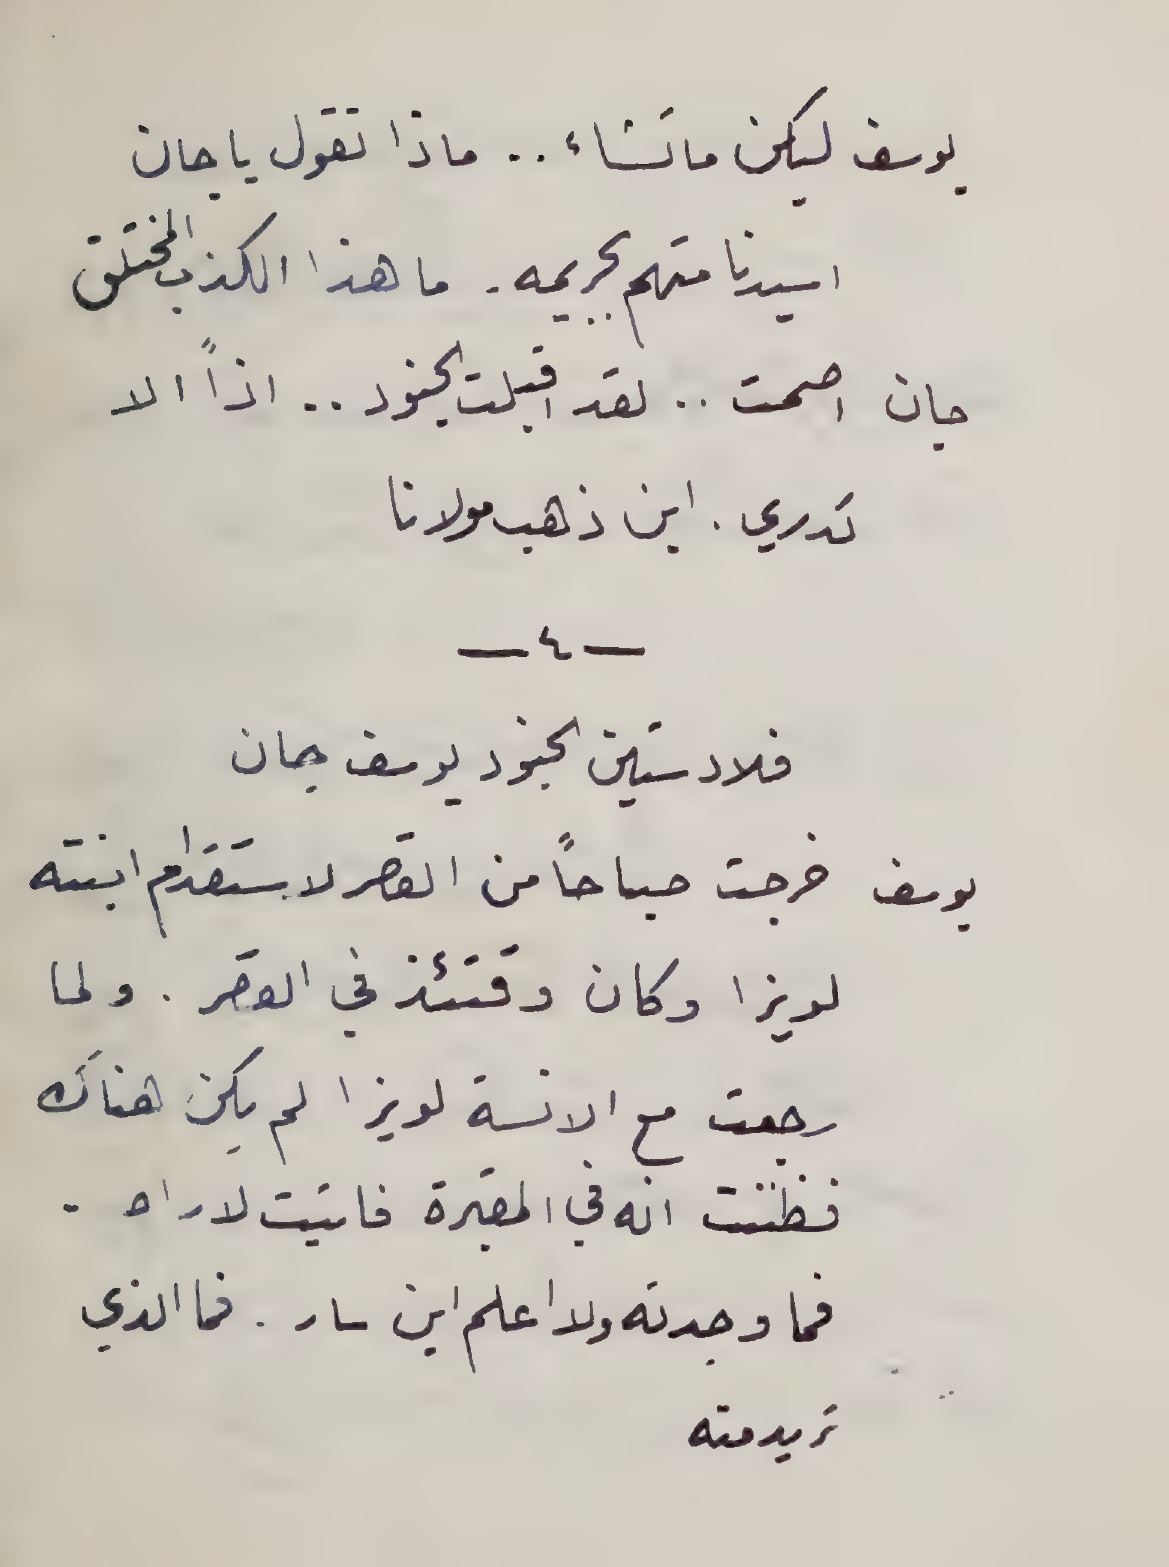 يوسف ليكن ما تشاء .. ماذا تقول يا جان
اسيدنا متهم بجريمه . ما هذا الكذب المختلق
جان اصمت .. لقد اقبلت الجنود .. اذاً الا
تدري . اين ذهب مولانا
— ٤ —
فلادستين الجنود يوسف جان
يوسف خرجت صباحاً من القصر لاستقدام ابنته
لويزا وكان وقتئذ في القصر . ولما
رجعت مع الانسة لويزا لم يكن هناك
فظننت انه في المقبرة فاتيت لاراه .
فما وجدته ولا اعلم اين سار . فما الذي
تريد منه